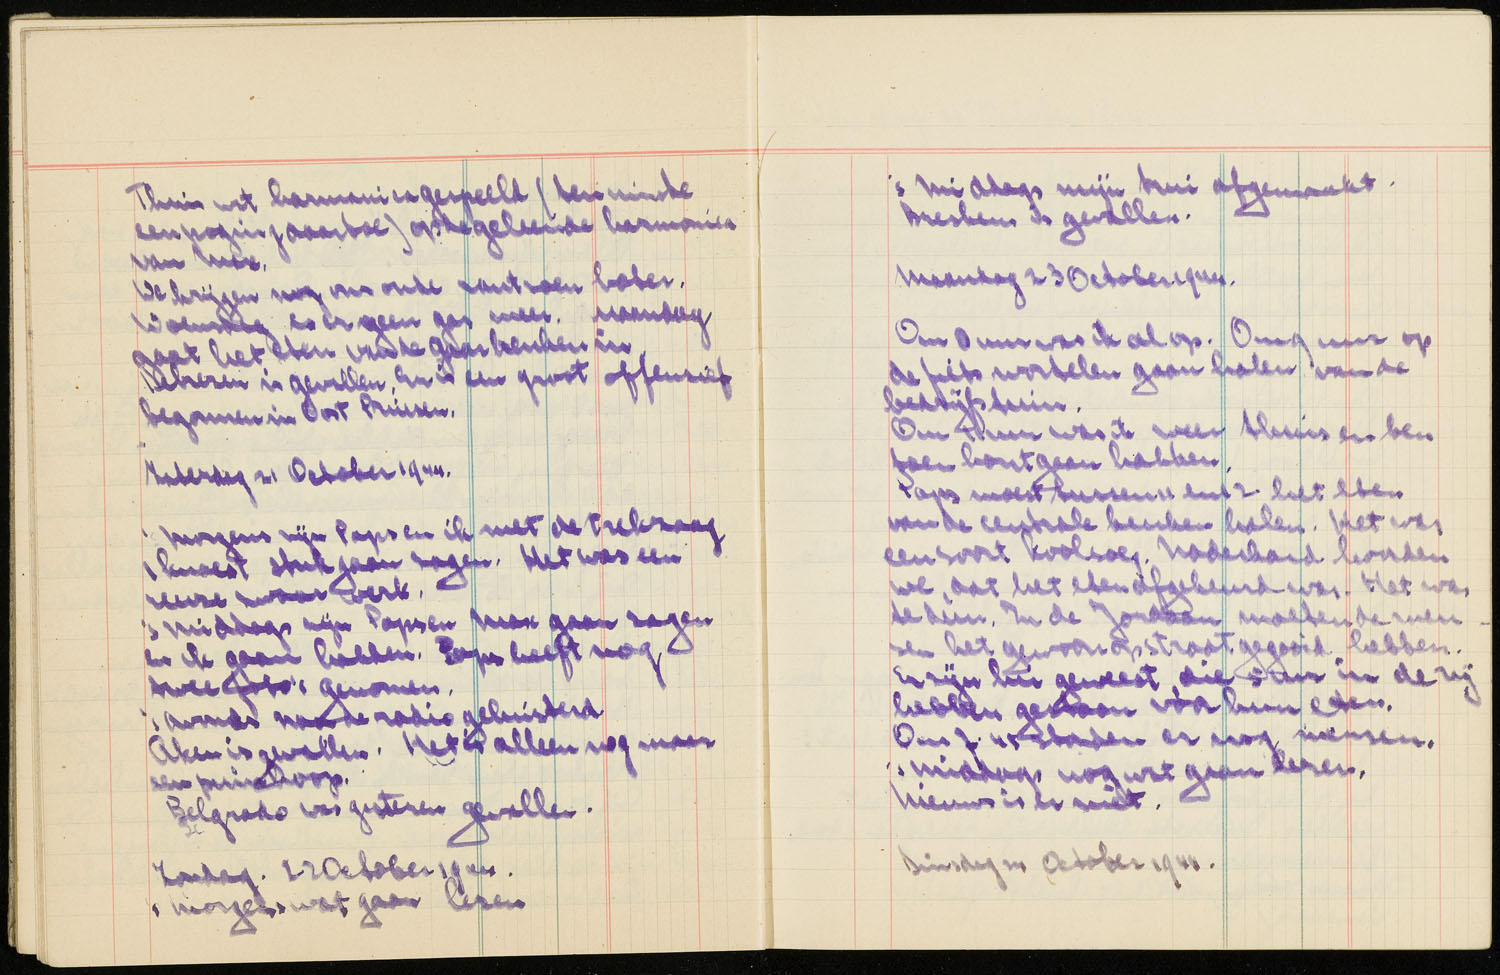 Thuis wat harmonica gespeeld (ten minste
een poging daartoe) op de geleende harmonica
van Max.
We krijgen nog ons oude rantsoen boter.
Woensdag is er geen gas meer. Maandag
gaat het eten van de gaarkeuken in
Debrecen is gevallen. Er is een groot offensief
begonnen in Oost Pruisen.
Zaterdag 21 October 1944.
's Morgens zijn Paps en ik met de trekzaag
stuk gaan zagen. Het was een
reuze zwaar werk.
's Middags zijn Paps en Max gaan zagen
en ik gaan hakken. Paps heeft nog
twee foto's genomen.
's avonds naar de radio geluisterd
Aken is gevallen. Het is alleen nog maar
een puinhoop.
Belgrado was gisteren gevallen.
Zondag. 22 October 1944.
's morgens wat gaan lezen
's Middags mijn trui afgemaakt.
Breskens is gevallen.
Maandag 23 October 1944.
Om 8 uur was ik al op. Om 9 uur op
de fiets wortelen gaan halen van de
bedrijfstuin.
Om 11 uur was ik weer thuis en ben
toen hout gaan hakken.
Paps moest tussen 11 en 12 het eten
van de centrale keuken halen. Het was
een soort koolsoep. Naderhand hoorden
we, dat het eten afgekeurd was. Het was
te dun. In de Jordaan moeten de men-
sen het gewoon op straat gegooid hebben.
Er zijn er geweest, die 5 uur in de rij
hebben gestaan voor hun eten.
Om 7.45 stonden er nog mensen.
's Middags nog wat gaan lezen.
Nieuws is er niet.
Dinsdag 24 October 1944.